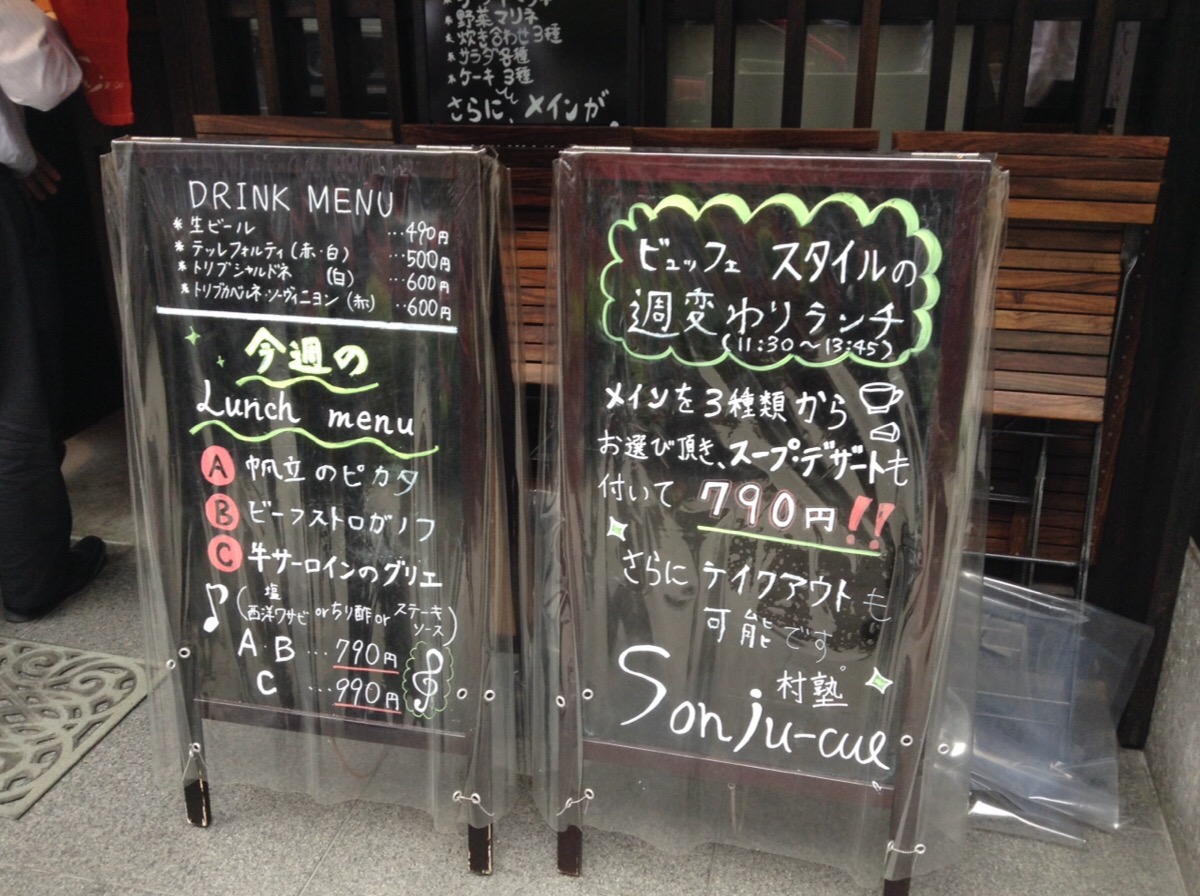 *野菜マリネ
*炊き合わせ3種
*サラダ各種
*ケーキ3種
さらに、メインが
DRINK MENU
*生ビール …490円
*テッレフォルティ(赤・白) …500円
*トリプシャルドネ (白) …600円
*トリプカベルネ・ソーヴィニヨン(赤) ‥600円
今週の
Lunch menu
A 帆立のピカタ
B ビーフストロガノフ
C 牛サーロインのグリエ
♪(塩
西洋ワサビ orちり酢or ステーキ
ソース)
A・B …790円
C …990円
ビュッフェ スタイルの
週変わりランチ
(11:30~13:45)
メインを3種類から
お選び頂き、スープデザートも
付いて 790円!!
さらにテイクアウトも
可能です。
村塾
Sonju-cue